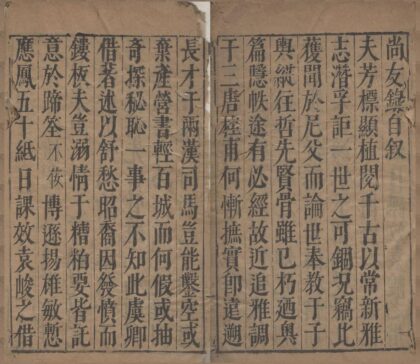 尚友錄自叙
夫芳標顯植閱千古以常新雅
志潛孚詎一世之可錮況竊比
獲聞於尼父而論世奉教于子
輿縱往哲先賢骨雖已朽迺奥
篇隱帙途有必經故近追雅調
于三唐桂甫何慚撫實郎遠遡
長才于兩漢司馬豈能鑿空或
棄產營書輕百城而何假或抽
奇探秘恥一事之不知此虞卿
借著述以舒愁昭裔因簽憤而
鏤板夫豈溺情于糟粕要皆託
意於蹄筌不佞博遜揚雄敏慙
應鳳五十紙日課效袁峻之借